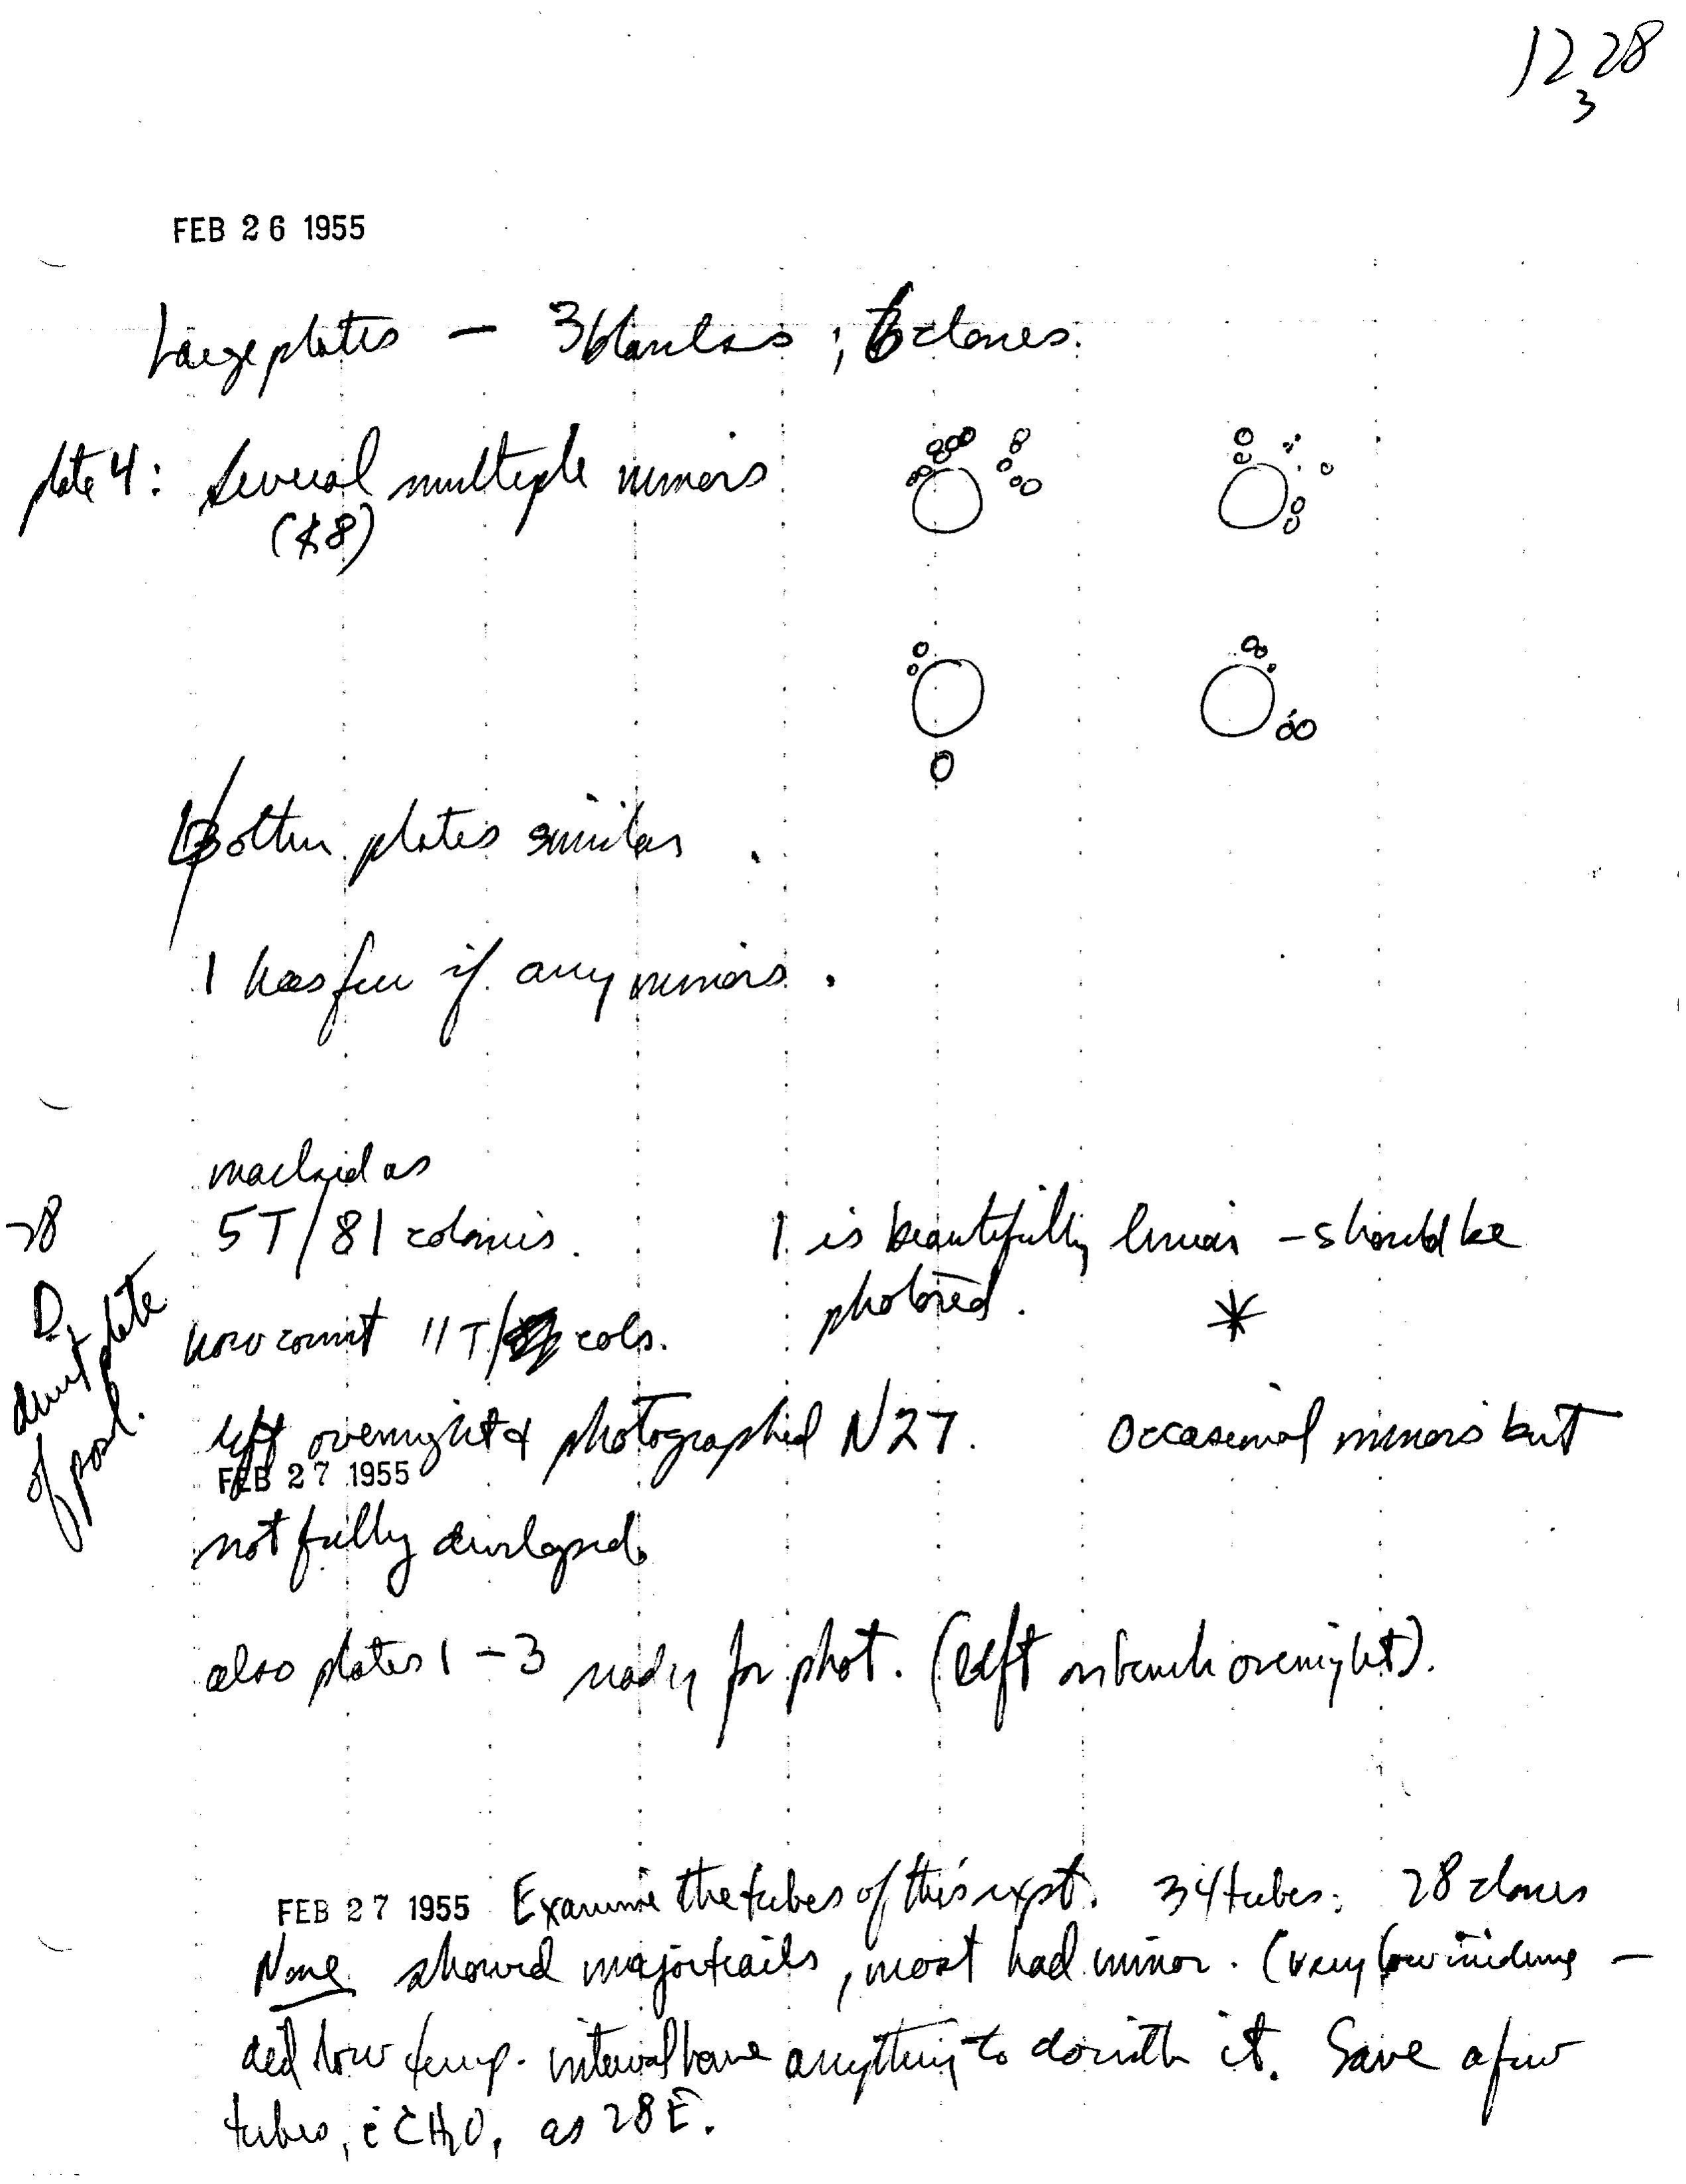 1228
3
FEB 26 1955
Large plates — 3 blanks ; 6 clones.
plate 4: Several multiple minors
8)
other plates similar.
1 has few if any minors.
as
28
5T/81 colonies. 1 is beautifully linear - should be
photo'ed. *
D,
plate
of
now count 11T/ cols.
left overnight & photographed N27. Occasional minors but
FEB 27 1955
not fully developed.
also plates 1-3 ready for phot. (left on bench overnight).
FEB 27 1955 Examine the tubes of this expt. 34 tubes: 28 clones
None showed major trails, most had minor. (very low incidence —
did low temp. interval have anything to do with it. Save a few
tubes, c̄ CH2O, as 28E.